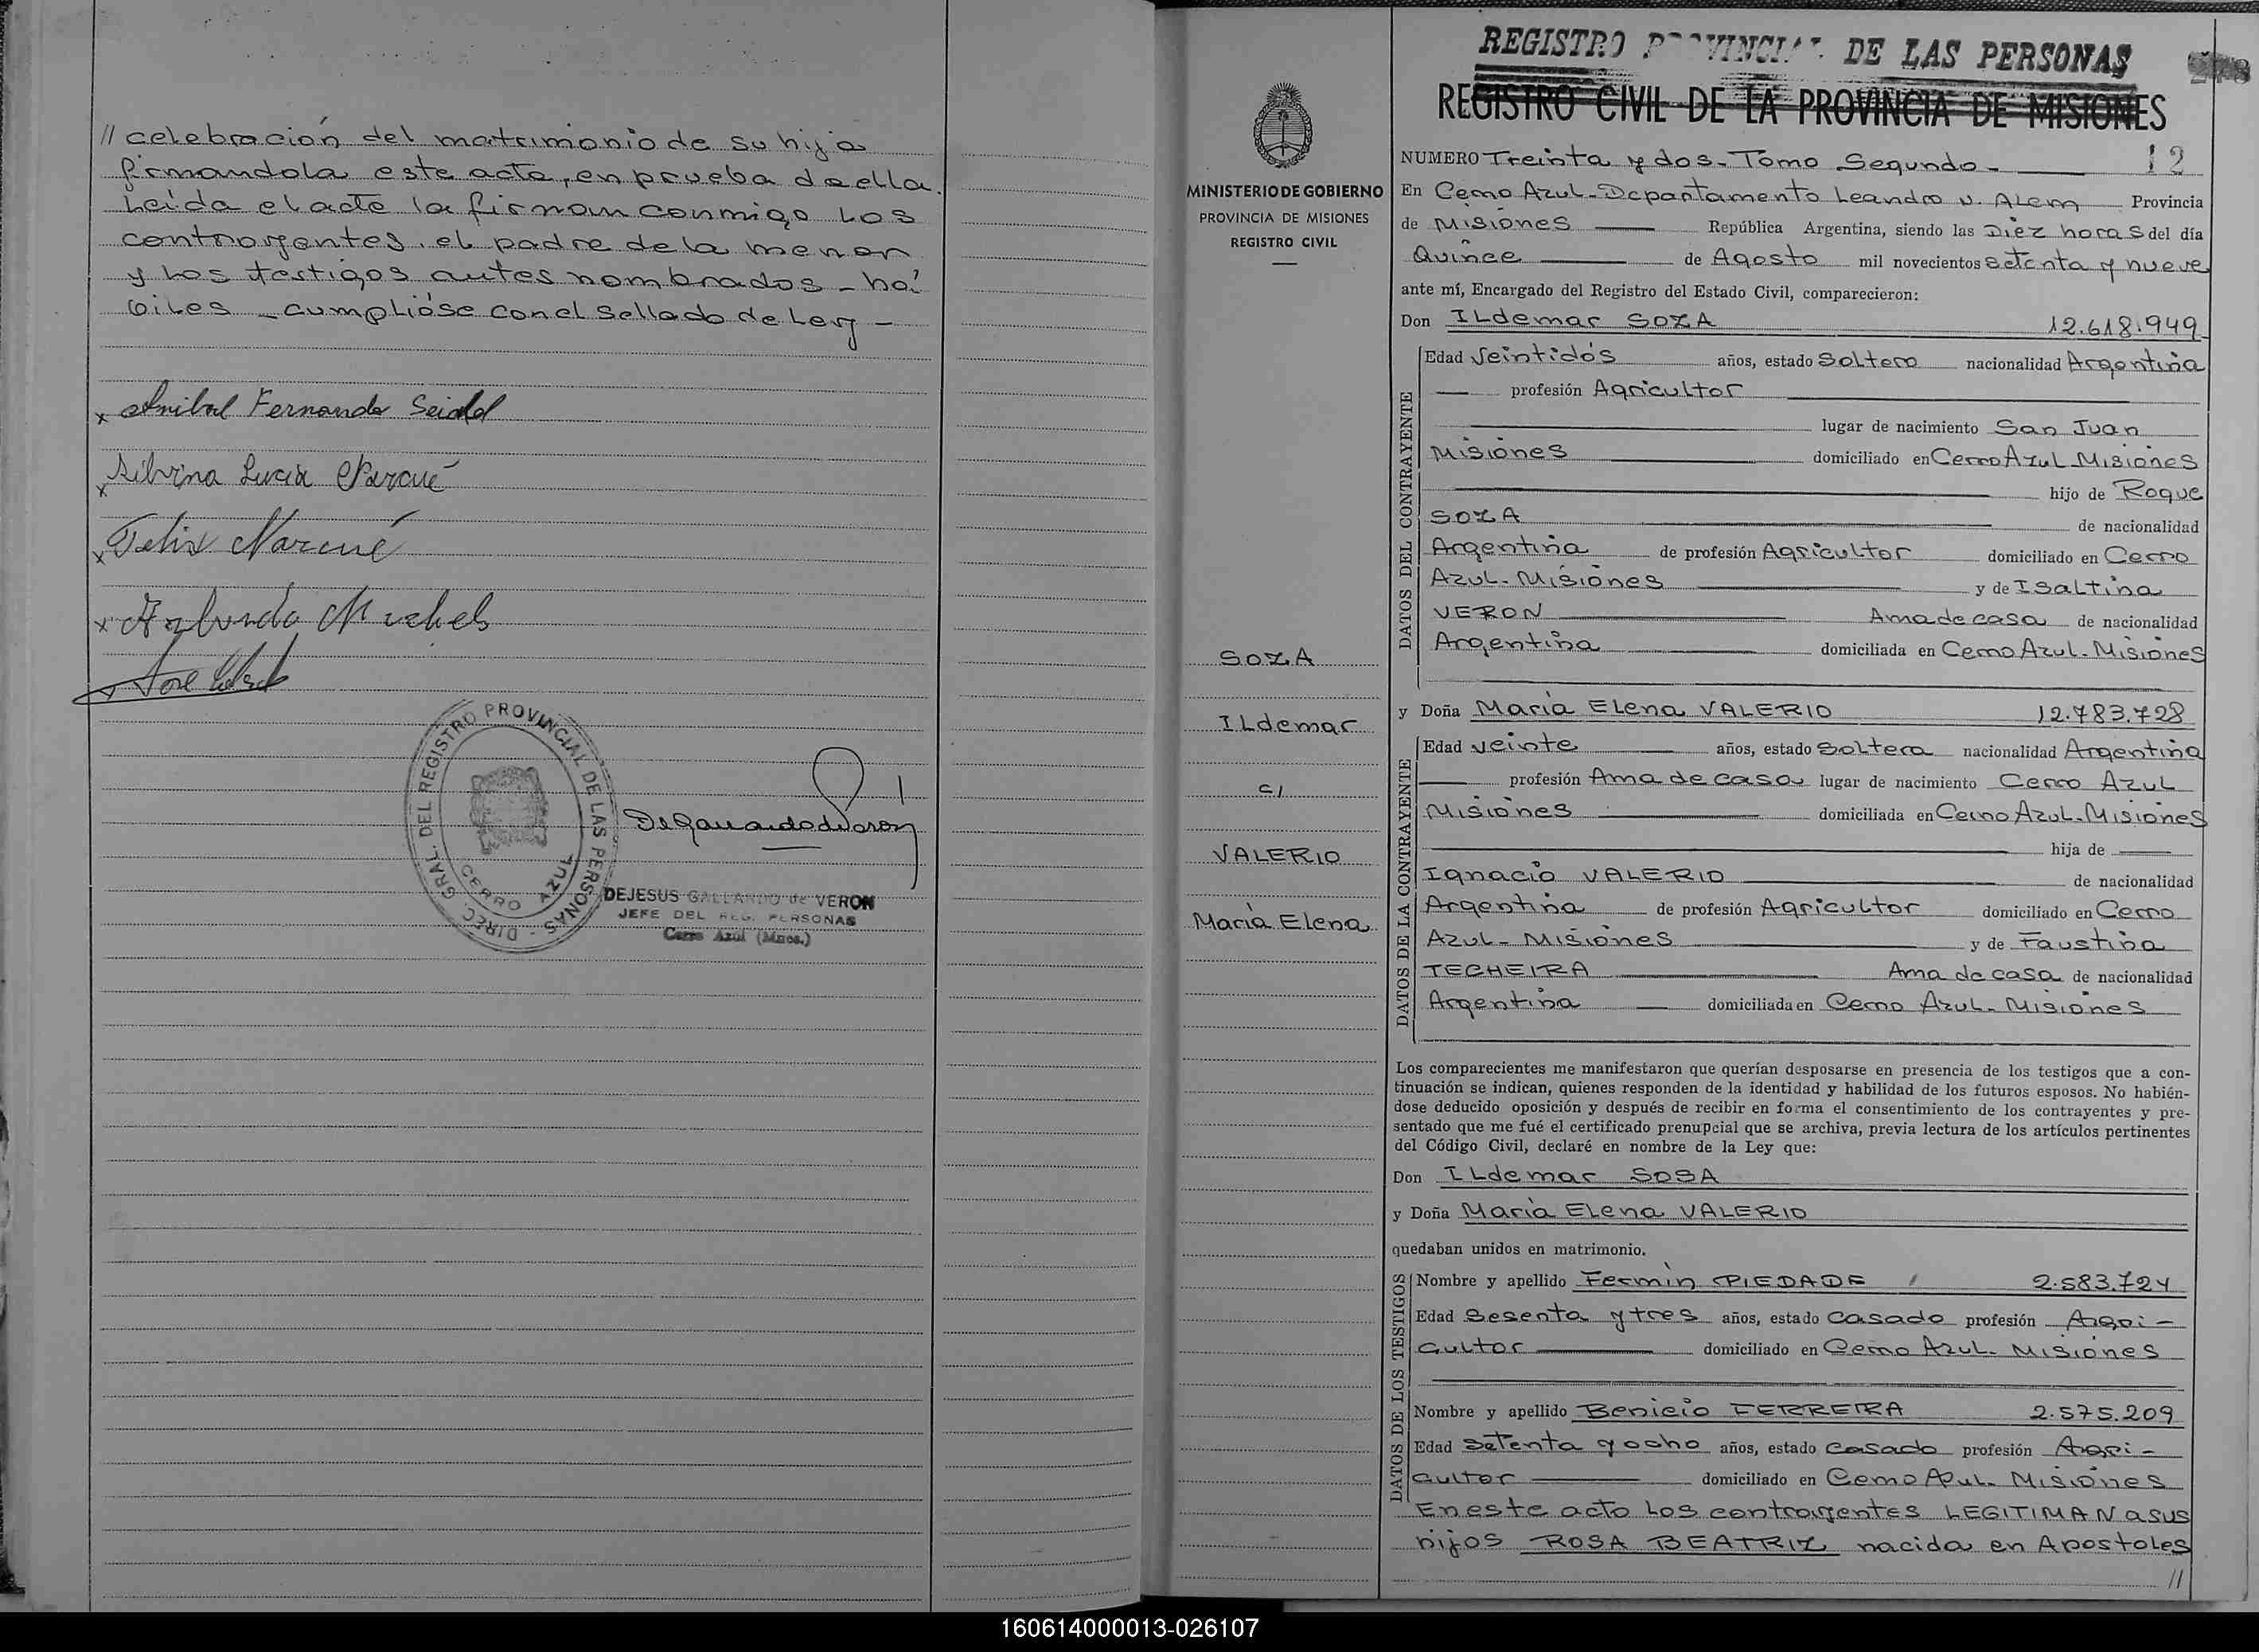 // celebración del matrimonio de su hija
firmandola este acta, en prueba de ella.
Leída el acta la firman conmigo Los
contrayentes, el padre de la menor
y Los testigos antes nombrados - há-
biles - cumplióse con el Sellado de Ley -
x Anibal Fernando Seidel
x Silvina Lucia Marcué
x Felix Marcué
x Arlindo Michels
x José
DIREC. GRAL. DEL REGISTRO PROVINCIAL DE LAS PERSONAS -
CERRO AZUL
DEJESUS GALLARDO de VERON
JEFE DEL REG. PERSONAS
Cerro Azul (Mnes.)
MINISTERIO DE GOBIERNO
PROVINCIA DE MISIONES
REGISTRO CIVIL
SOZA
ILdemar
c/
VALERIO
María Elena
REGISTRO PROVINCIAL DE LAS PERSONAS
REGISTRO CIVIL DE LA PROVINCIA DE MISIONES
NUMERO Treinta y dos - Tomo Segundo - 12
En Cerro Azul - Departamento Leandro N. Alem Provincia
de Misiones República Argentina, siendo las Diez horas del día
Quince de Agosto mil novecientos setenta y nueve
ante mí, Encargado del Registro del Estado Civil, comparecieron:
Don ILdemar SOZA 12.618.949
DATOS DEL CONTRAYENTE
Edad Veintidós años, estado Soltero nacionalidad Argentina
profesión Agricultor
lugar de nacimiento San Juan
Misiones domiciliado en Cerro Azul Misiones
hijo de Roque
SOZA de nacionalidad
Argentina de profesión Agricultor domiciliado en Cerro
Azul - Misiones y de Isaltina
VERON Ama de casa de nacionalidad
Argentina domiciliada en Cerro Azul - Misiones
y Doña María Elena VALERIO 12.783.728
DATOS DE LA CONTRAYENTE
Edad veinte años, estado Soltera nacionalidad Argentina
profesión Ama de casa lugar de nacimiento Cerro Azul
Misiones domiciliada en Cerro Azul - Misiones
hija de
Ignacio VALERIO de nacionalidad
Argentina de profesión Agricultor domiciliado en Cerro
Azul - Misiones y de Faustina
TECHEIRA Ama de casa de nacionalidad
Argentina domiciliada en Cerro Azul - Misiones
Los comparecientes me manifestaron que querían desposarse en presencia de los testigos que a con-
tinuación se indican, quienes responden de la identidad y habilidad de los futuros esposos. No habién-
dose deducido oposición y después de recibir en forma el consentimiento de los contrayentes y pre-
sentado que me fué el certificado prenupcial que se archiva, previa lectura de los artículos pertinentes
del Código Civil, declaré en nombre de la Ley que:
Don ILdemar SOSA
y Doña María Elena VALERIO
quedaban unidos en matrimonio.
DATOS DE LOS TESTIGOS
Nombre y apellido Fermín PIEDADE 2.583.724
Edad Sesenta y tres años, estado casado profesión Agri-
cultor domiciliado en Cerro Azul - Misiones
Nombre y apellido Benicio FERREIRA 2.575.209
Edad Setenta y ocho años, estado casado profesión Agri-
cultor domiciliado en Cerro Azul - Misiones
En este acto Los contrayentes LEGITIMAN a sus
hijos ROSA BEATRIZ nacida en Apostoles
//
160614000013-026107